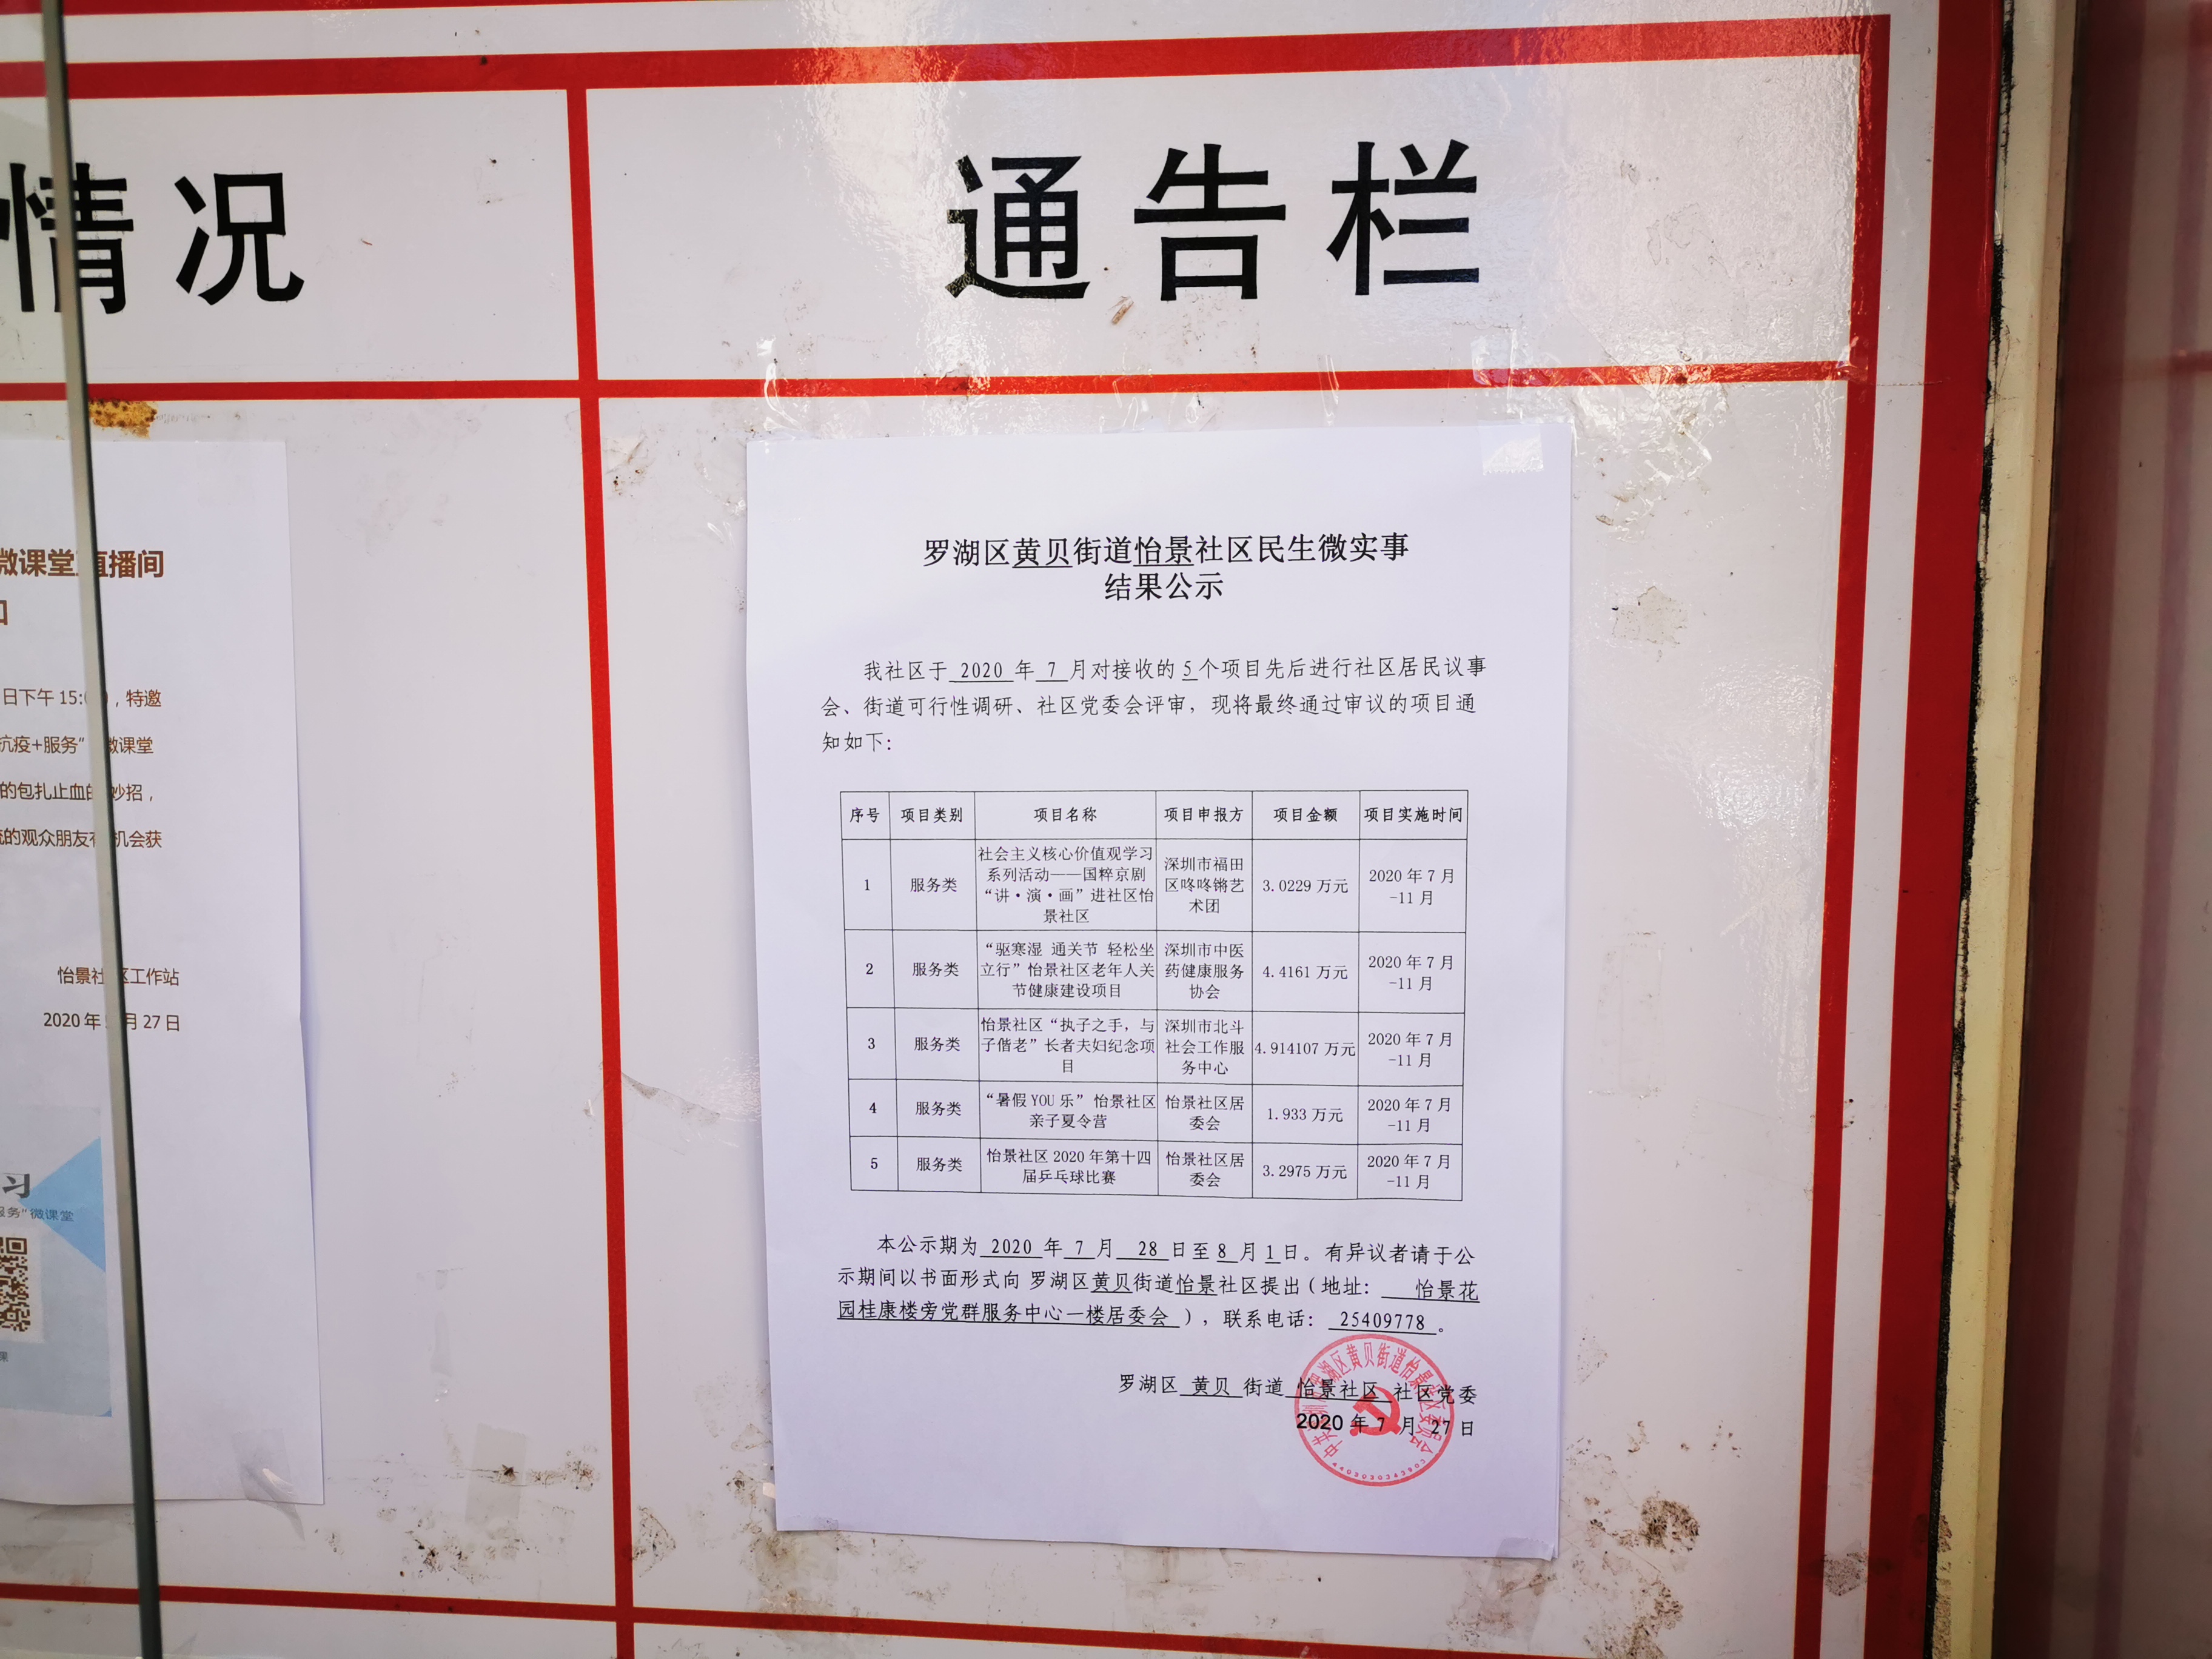 情况
通告栏
微课堂直播间
日下午 15:0 ，特邀
抗疫+服务” 微课堂
的包扎止血的妙招，
的观众朋友有机会获
怡景社区工作站
2020 年 月 27 日
习
服务”微课堂
课
罗湖区黄贝街道怡景社区民生微实事
结果公示
我社区于 2020 年 7 月对接收的 5 个项目先后进行社区居民议事
会、街道可行性调研、社区党委会评审，现将最终通过审议的项目通
知如下：
序号 项目类别 项目名称 项目申报方 项目金额 项目实施时间
1 服务类 社会主义核心价值观学习系列活动——国粹京剧“讲·演·画”进社区怡景社区 深圳市福田区咚咚锵艺术团 3.0229 万元 2020 年 7 月-11 月
2 服务类 “驱寒湿 通关节 轻松坐立行”怡景社区老年人关节健康建设项目 深圳市中医药健康服务协会 4.4161 万元 2020 年 7 月-11 月
3 服务类 怡景社区“执子之手，与子偕老”长者夫妇纪念项目 深圳市北斗社会工作服务中心 4.914107 万元 2020 年 7 月-11 月
4 服务类 “暑假 YOU 乐” 怡景社区亲子夏令营 怡景社区居委会 1.933 万元 2020 年 7 月-11 月
5 服务类 怡景社区 2020 年第十四届乒乓球比赛 怡景社区居委会 3.2975 万元 2020 年 7 月-11 月
本公示期为 2020 年 7 月 28 日至 8 月 1 日。有异议者请于公
示期间以书面形式向 罗湖区黄贝街道怡景社区提出（地址： 怡景花
园桂康楼旁党群服务中心一楼居委会 ），联系电话： 25409778 。
罗湖区 黄贝 街道 怡景社区 社区党委
2020 年 7 月 27 日
4403030343903